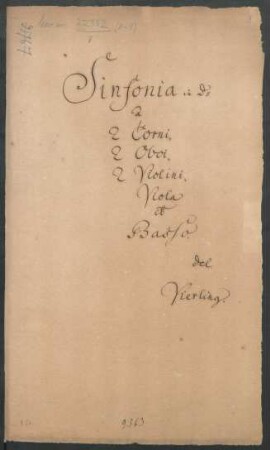 Sinfonia
a
2 Corni,
2 Oboi,
2 Violini,
Viola
et
Basso.
del
Vierling.
9363